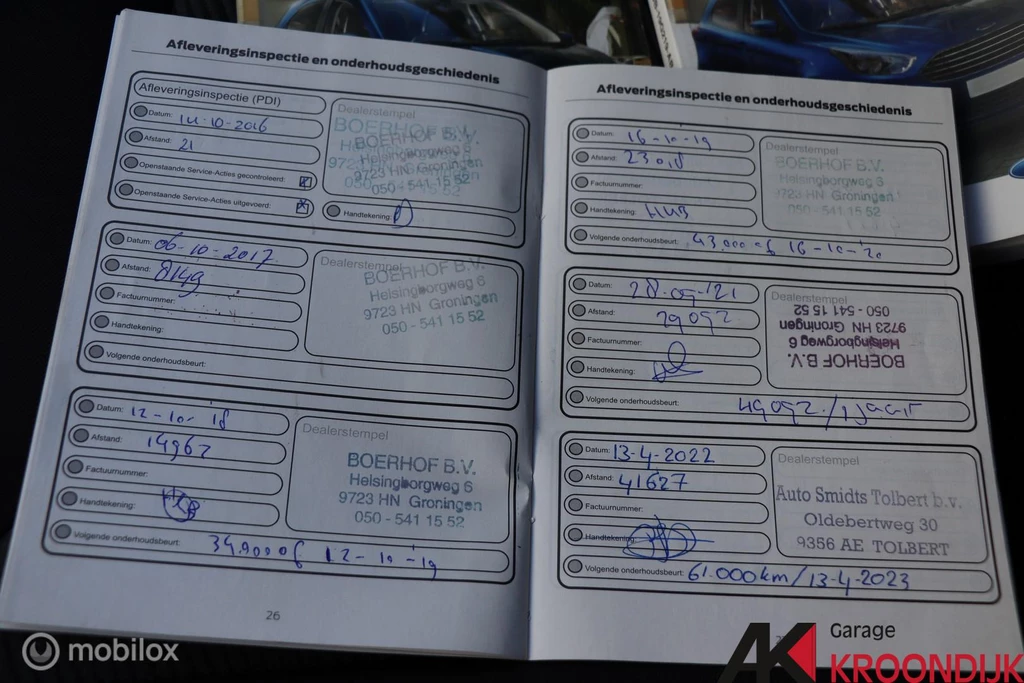 Afleveringsinspectie en onderhoudsgeschiedenis
Afleveringsinspectie (PDI)
Datum: 14-10-2016
Afstand: 21
Openstaande Service-Acties gecontroleerd: X
Openstaande Service-Acties uitgevoerd: X
Handtekening:
Dealerstempel
BOERHOF B.V.
Helsingborgweg 6
9723 HN Groningen
050 - 541 15 52
Datum: 06-10-2017
Afstand: 8149
Factuurnummer:
Handtekening:
Volgende onderhoudsbeurt:
Dealerstempel
BOERHOF B.V.
Helsingborgweg 6
9723 HN Groningen
050 - 541 15 52
Datum: 12-10-18
Afstand: 14962
Factuurnummer:
Handtekening:
Volgende onderhoudsbeurt: 34.900 of 12-10-19
Dealerstempel
BOERHOF B.V.
Helsingborgweg 6
9723 HN Groningen
050 - 541 15 52
26
Afleveringsinspectie en onderhoudsgeschiedenis
Datum: 16-10-19
Afstand: 23018
Factuurnummer:
Handtekening:
Volgende onderhoudsbeurt: 43.000 of 16-10-20
Dealerstempel
BOERHOF B.V.
Helsingborgweg 6
9723 HN Groningen
050 - 541 15 52
Datum: 28-09-'21
Afstand: 29092
Factuurnummer:
Handtekening:
Volgende onderhoudsbeurt: 49092 / 1 jaar
Dealerstempel
BOERHOF B.V.
Helsingborgweg 6
9723 HN Groningen
050 - 541 15 52
Datum: 13-4-2022
Afstand: 41627
Factuurnummer:
Handtekening:
Volgende onderhoudsbeurt: 61.000km/13-4-2023
Dealerstempel
Auto Smidts Tolbert b.v.
Oldebertweg 30
9356 AE TOLBERT
mobilox
AK Garage
KROONDIJK